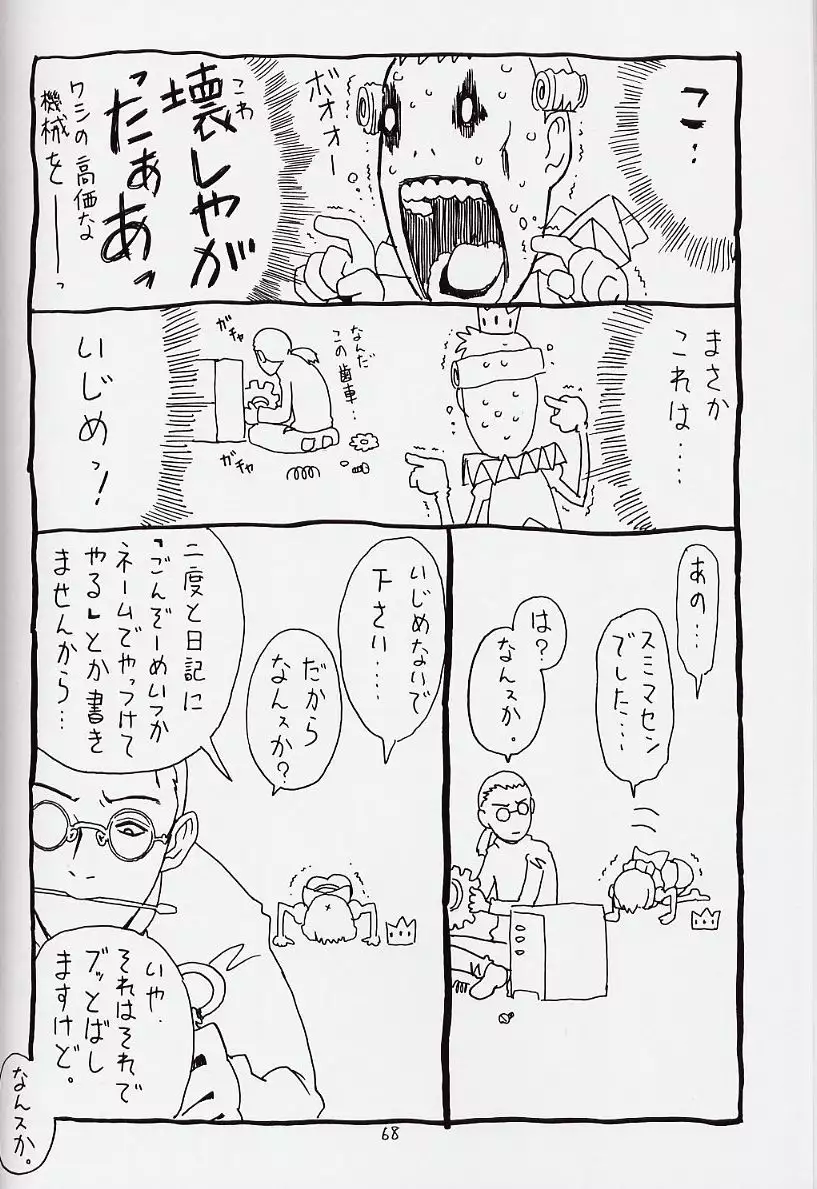 こ…
ボオオー
壊しやが
こわ
ったぁあっ
ワシの高価な
機械をーーっ
まさか
これは……
なんだ
この歯車…
ガチャ
ガチャ
いじめっ!
あの…
スミマセン
でした…
は?
なんスか。
いじめないで
下さい……
だから
なんスか?
二度と日記に
「ごんぞーめいつか
ネームでやっつけて
やる」とか書き
ませんから…
いや.
それはそれで
ブッとばし
ますけど。
なんスか。
68